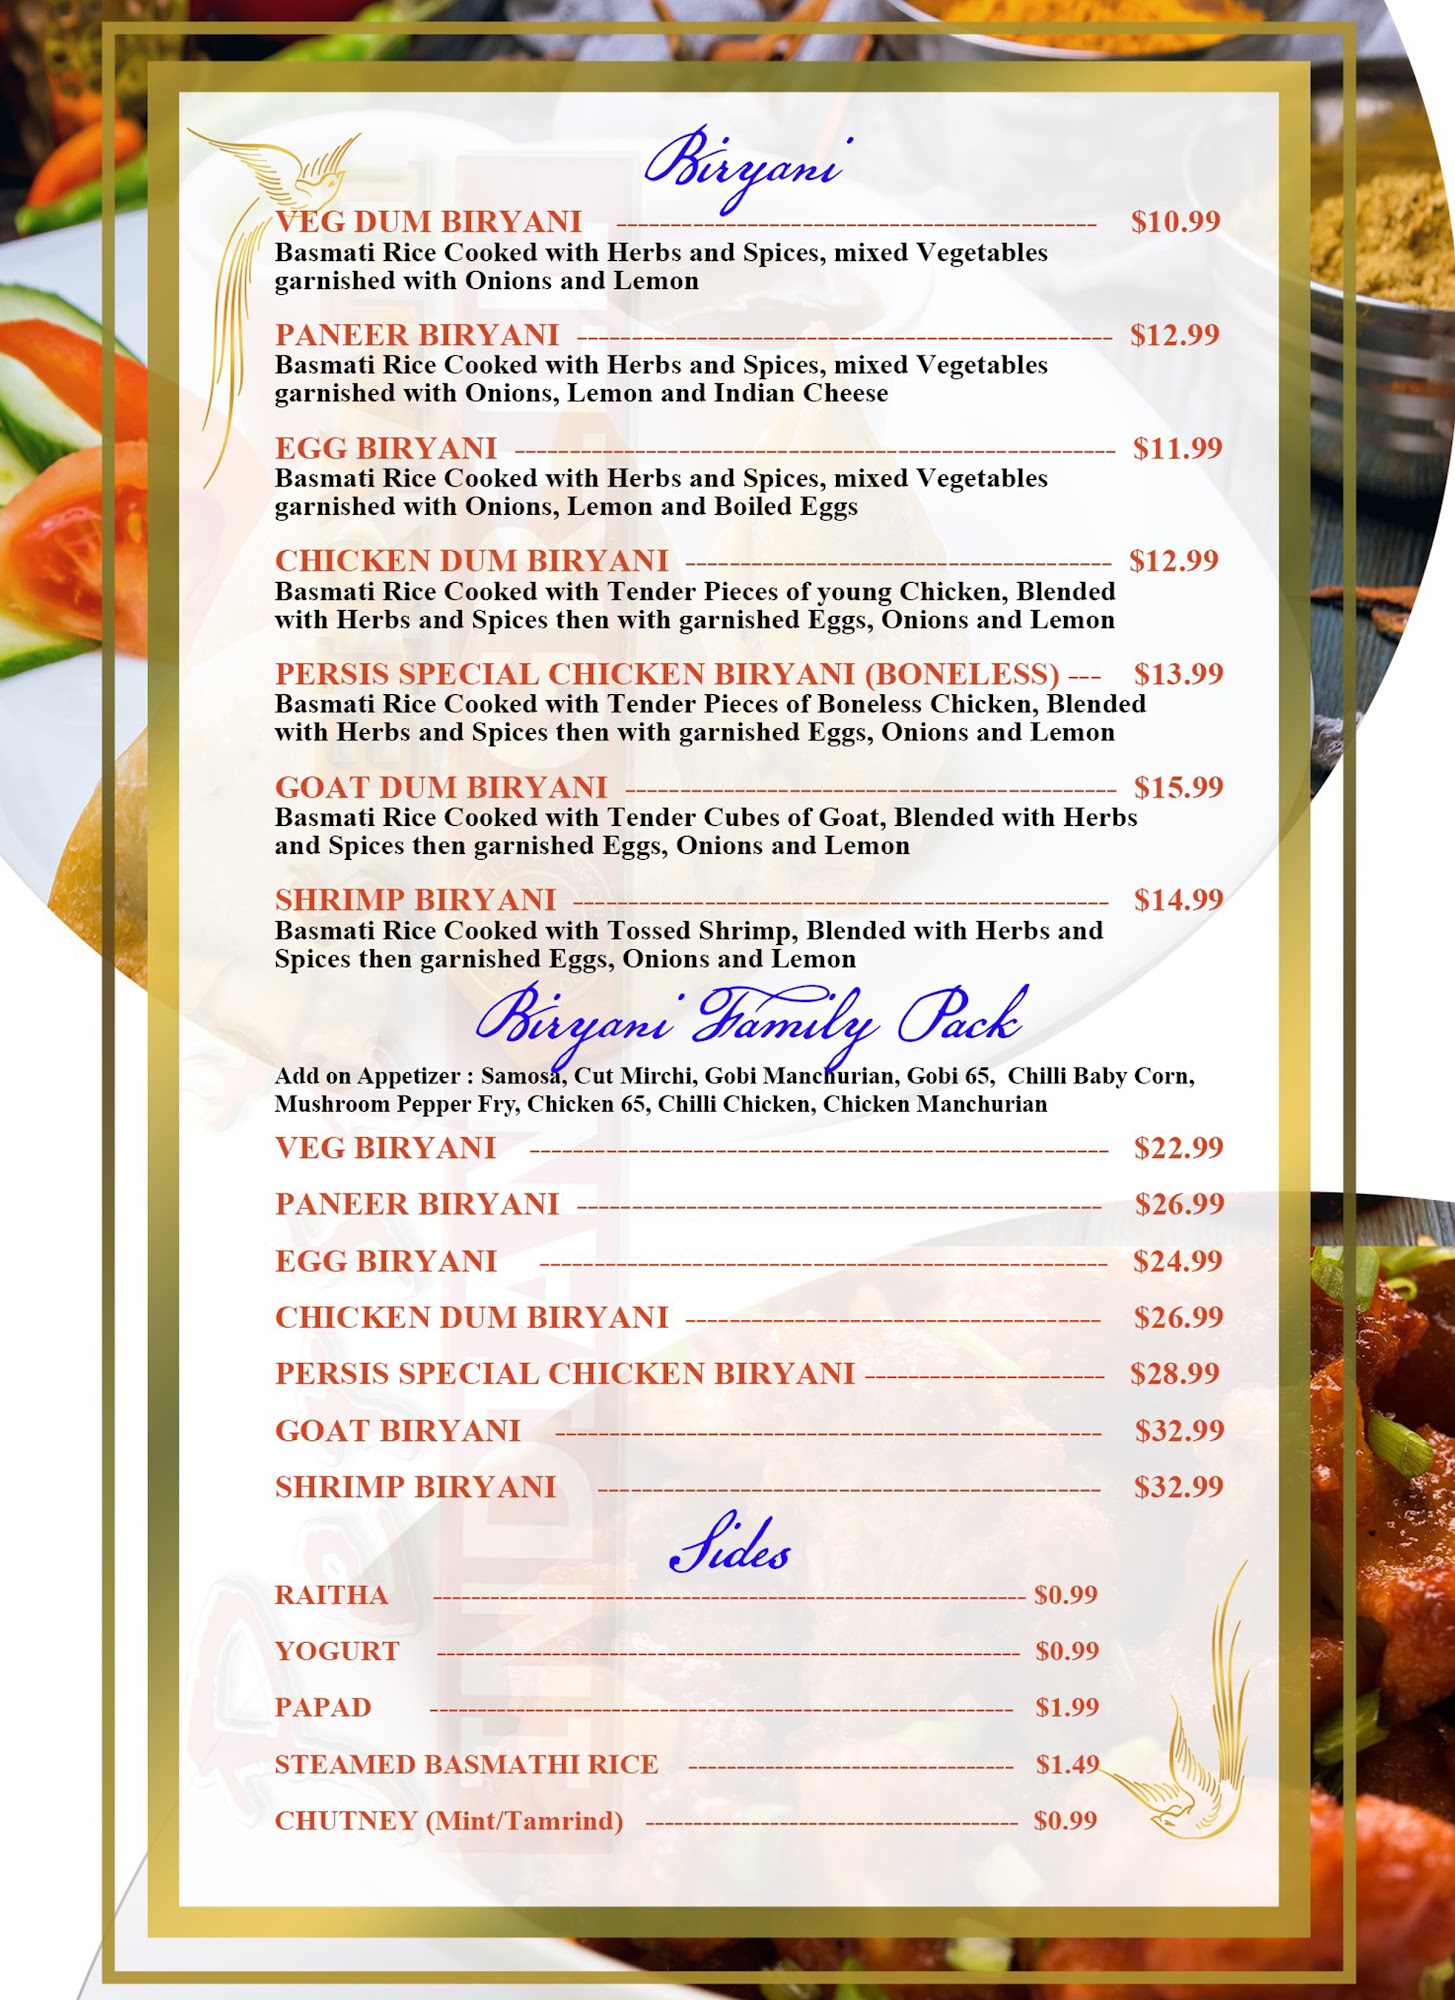 Biryani
VEG DUM BIRYANI ------------------------------------------------ $10.99
Basmati Rice Cooked with Herbs and Spices, mixed Vegetables
garnished with Onions and Lemon
PANEER BIRYANI ------------------------------------------------ $12.99
Basmati Rice Cooked with Herbs and Spices, mixed Vegetables
garnished with Onions, Lemon and Indian Cheese
EGG BIRYANI ------------------------------------------------ $11.99
Basmati Rice Cooked with Herbs and Spices, mixed Vegetables
garnished with Onions, Lemon and Boiled Eggs
CHICKEN DUM BIRYANI -------------------------------------- $12.99
Basmati Rice Cooked with Tender Pieces of young Chicken, Blended
with Herbs and Spices then with garnished Eggs, Onions and Lemon
PERSIS SPECIAL CHICKEN BIRYANI (BONELESS) --- $13.99
Basmati Rice Cooked with Tender Pieces of Boneless Chicken, Blended
with Herbs and Spices then with garnished Eggs, Onions and Lemon
GOAT DUM BIRYANI -------------------------------------------- $15.99
Basmati Rice Cooked with Tender Cubes of Goat, Blended with Herbs
and Spices then garnished Eggs, Onions and Lemon
SHRIMP BIRYANI ------------------------------------------------ $14.99
Basmati Rice Cooked with Tossed Shrimp, Blended with Herbs and
Spices then garnished Eggs, Onions and Lemon
Biryani Family Pack
Add on Appetizer : Samosa, Cut Mirchi, Gobi Manchurian, Gobi 65, Chilli Baby Corn,
Mushroom Pepper Fry, Chicken 65, Chilli Chicken, Chicken Manchurian
VEG BIRYANI ---------------------------------------------------- $22.99
PANEER BIRYANI ----------------------------------------------- $26.99
EGG BIRYANI --------------------------------------------------- $24.99
CHICKEN DUM BIRYANI ------------------------------------- $26.99
PERSIS SPECIAL CHICKEN BIRYANI ---------------------- $28.99
GOAT BIRYANI ------------------------------------------------- $32.99
SHRIMP BIRYANI --------------------------------------------- $32.99
Sides
RAITHA ------------------------------------------------------------ $0.99
YOGURT ----------------------------------------------------------- $0.99
PAPAD ----------------------------------------------------------- $1.99
STEAMED BASMATHI RICE --------------------------------- $1.49
CHUTNEY (Mint/Tamrind) -------------------------------------- $0.99